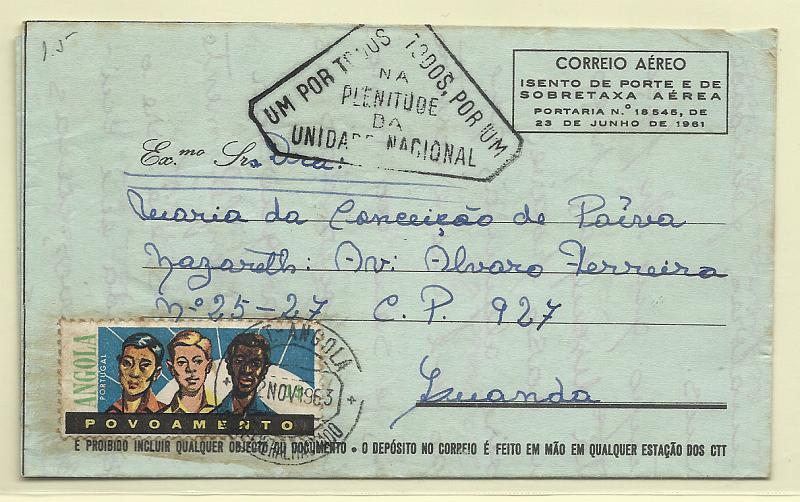 1.5
UM POR TODOS TODOS, POR UM
NA
PLENITUDE
DA
UNIDADE NACIONAL
CORREIO AÉREO
ISENTO DE PORTE E DE
SOBRETAXA AÉREA
PORTARIA N.º 18545, DE
23 DE JUNHO DE 1961
Ex.mo Sr.
Maria da Conceição de Paiva
Nazareth: Av: Alvaro Ferreira
Nº 25-27 C.P. 927
Luanda
ANGOLA
PORTUGAL
POVOAMENTO
ANGOLA
NOV 1963
É PROIBIDO INCLUIR QUALQUER OBJECTO OU DOCUMENTO • O DEPÓSITO NO CORREIO É FEITO EM MÃO EM QUALQUER ESTAÇÃO DOS CTT